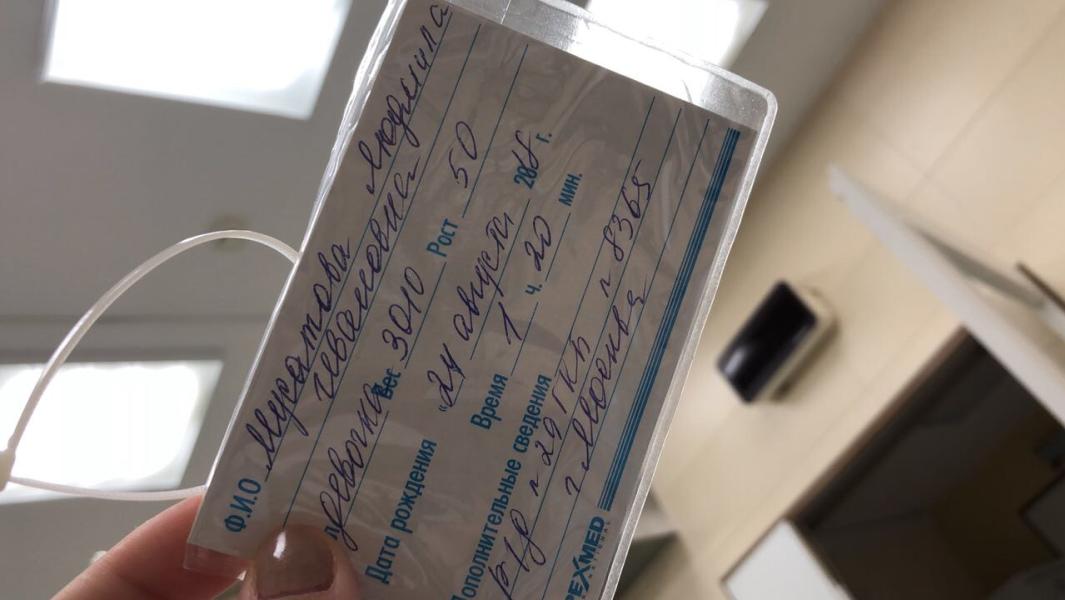 Ф.И.О Мусатова Людмила
Чеваловна
девочка Вес 3010 Рост 50
Дата рождения "24 августа 2018 г.
Время 1 ч. 20 мин.
Дополнительные сведения
р/д - 29 ГКБ n 8365
г Москва
REXMED